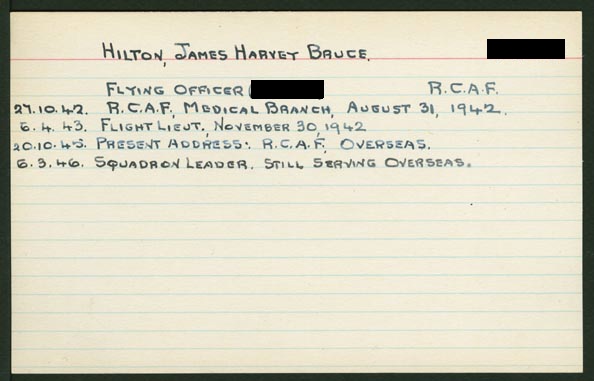 HILTON, JAMES HARVEY BRUCE.
FLYING OFFICER R.C.A.F.
27.10.42. R.C.A.F. MEDICAL BRANCH, AUGUST 31, 1942.
6.4.43. FLIGHT LIEUT., NOVEMBER 30, 1942
20.10.45. PRESENT ADDRESS: R.C.A.F. OVERSEAS.
6.3.46. SQUADRON LEADER. STILL SERVING OVERSEAS.